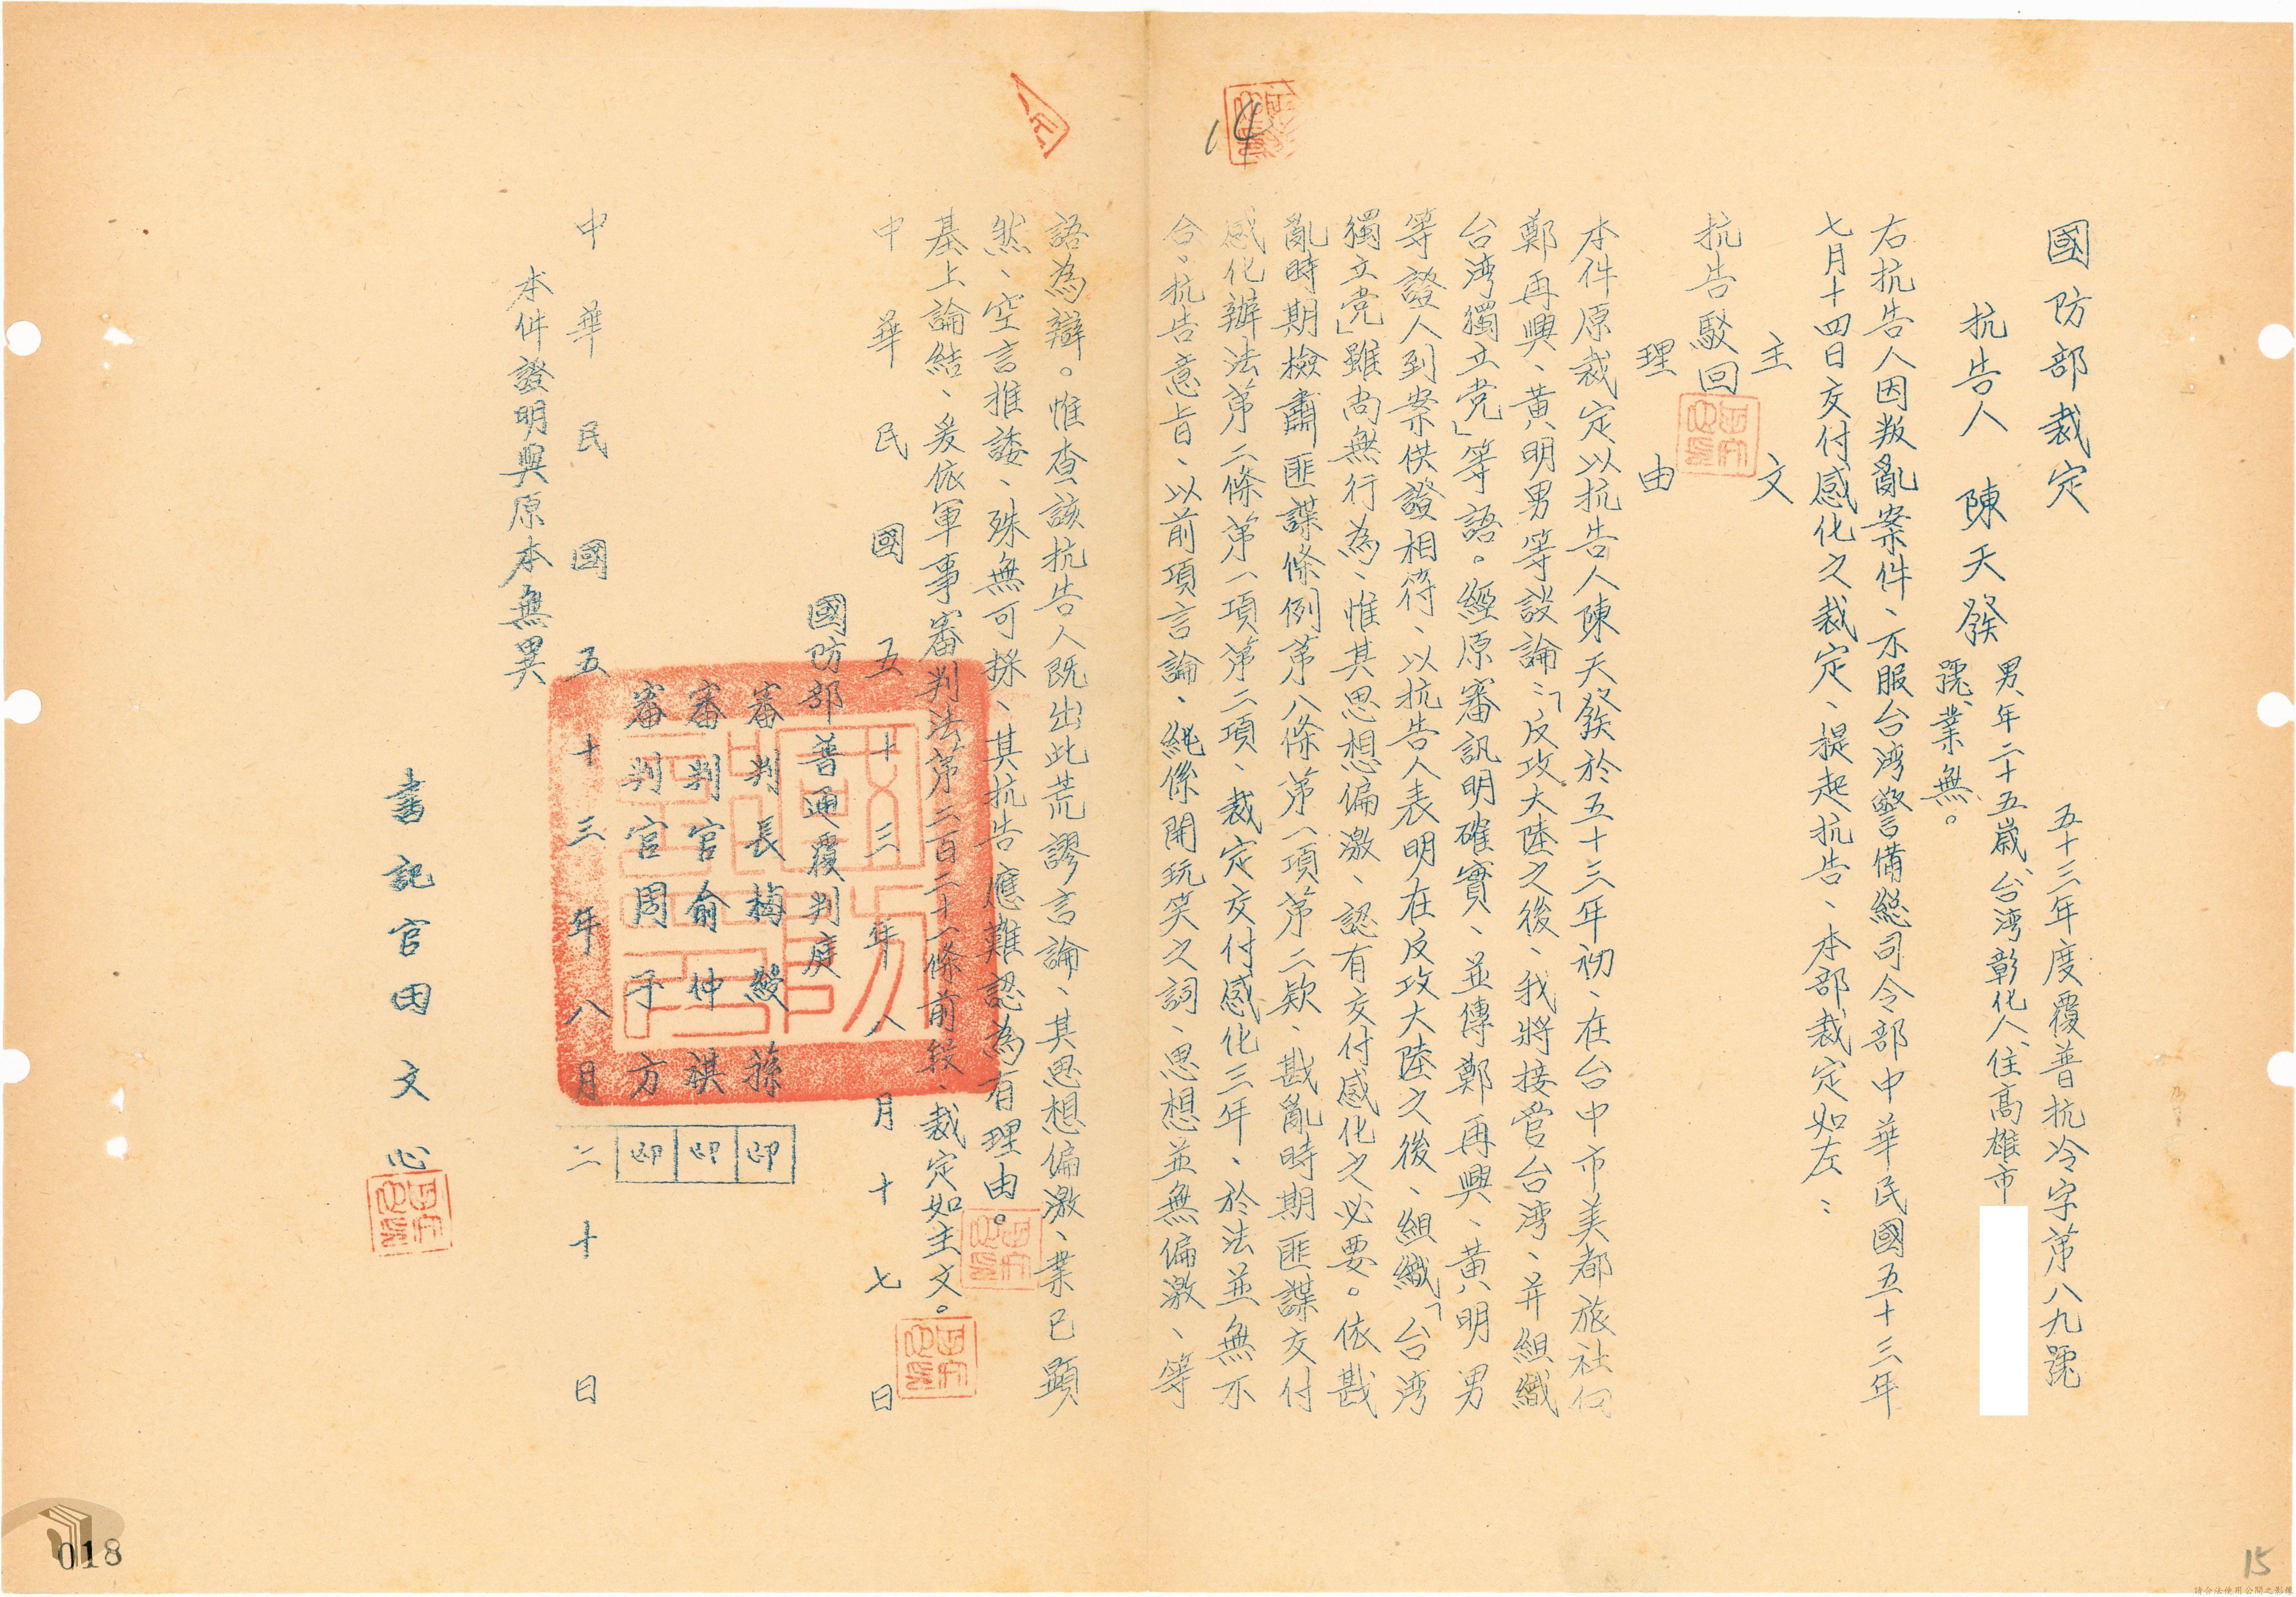 國防部裁定
五十三年度覆普抗冷字第八九號
抗告人 陳天發
男、年二十五歲、台湾彰化人、住高雄市
號、業無。
右抗告人因叛亂案件、不服台湾警備總司令部中華民國五十三年
七月十四日交付感化之裁定、提起抗告、本部裁定如左：
主文
抗告駁回
理由
本件原裁定以抗告人陳天發於五十三年初、在台中市美都旅社向
鄭再興、黃明男等談論：「反攻大陸之後、我將接管台湾、并組織
台湾獨立党」等語。經原審訊明確實、並傳鄭再興、黃明男
等證人到案供證相符、以抗告人表明在反攻大陸之後、組織「台湾
獨立党」雖尚無行為、惟其思想偏激、認有交付感化之必要。依戡
亂時期檢肅匪諜條例第八條第一項第二款、戡亂時期匪諜交付
感化辦法第二條第一項第二項、裁定交付感化三年、於法並無不
合。抗告意旨、以前項言論、純係開玩笑之詞、思想並無偏激、等
語為辯。惟查該抗告人既出此荒謬言論、其思想偏激、業已顯
然、空言推諉、殊無可採、其抗告應難認為有理由。
基上論結、爰依軍事審判法第二百二十一條前段、裁定如主文。
中華民國五十三年八月十七日
國防部普通覆判庭
審判長梅綬蓀 印
審判官俞仲祺 印
審判官周子方 印
中華民國五十三年八月二十日
本件證明與原本無異
書記官田文心
14
018
15
請合法使用公開之影像